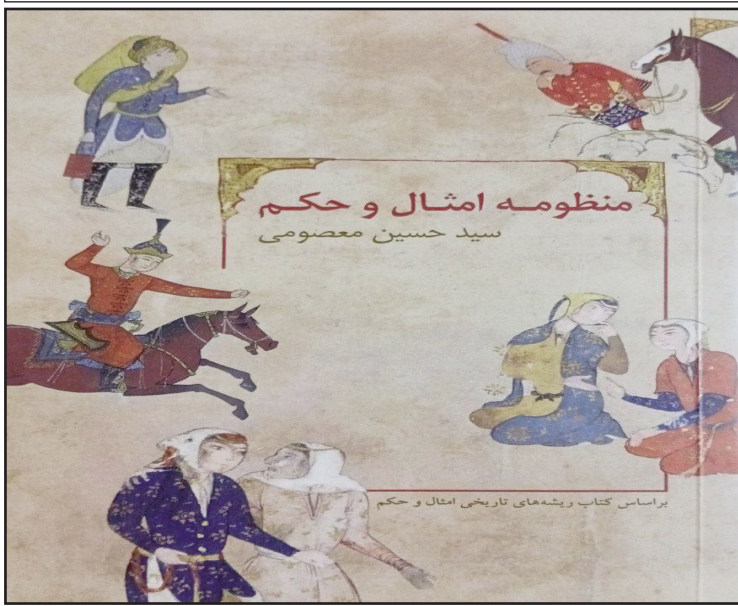 منظومه امثال و حکم
سید حسین معصومی
براساس کتاب ریشه‌های تاریخی امثال و حکم